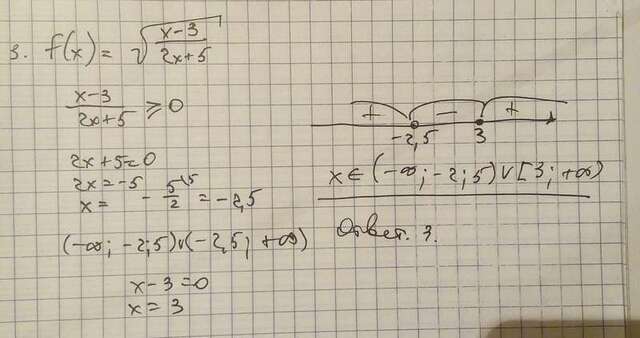 3. f(x) = √((x-3)/(2x+5))
(x-3)/(2x+5) ≥ 0
2x+5=0
2x=-5
x= -5/2 = -2,5
(-∞; -2,5)∪(-2,5; +∞)
x-3=0
x=3
+ - +
-2,5 3
x∈(-∞; -2,5)∪[3; +∞)
Ответ. 3.